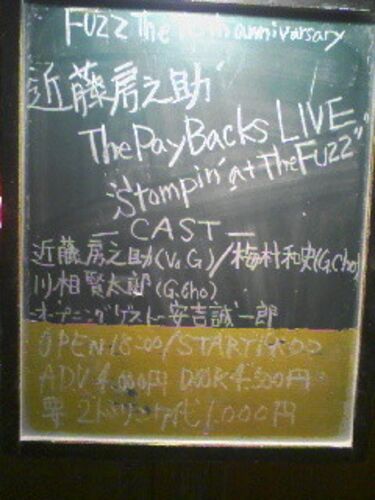 FUZZ The anniversary
近藤房之助
The PayBacks LIVE
"Stompin' at The FUZZ"
— CAST —
近藤房之助(Vo.G)/梅村和史(G.Cho)
川相賢太郎(G.Cho)
オープニングゲスト 安吉誠一郎
OPEN18:00/START19:00
ADV4.000円 DOOR4.500円
2ドリンク代1.000円